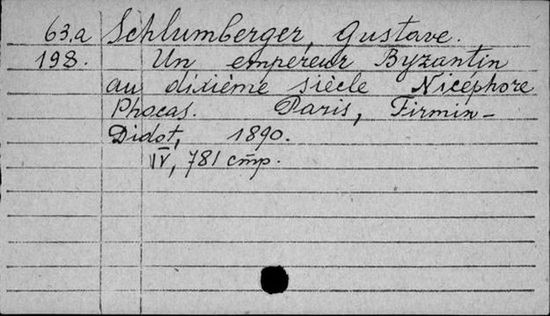 63.a Schlumberger, Gustave.
198. Un empéreur Byzantin
au dixième siècle Nicéphore
Phocas. Paris, Firmin-
Didot, 1890.
IV, 781 стр.